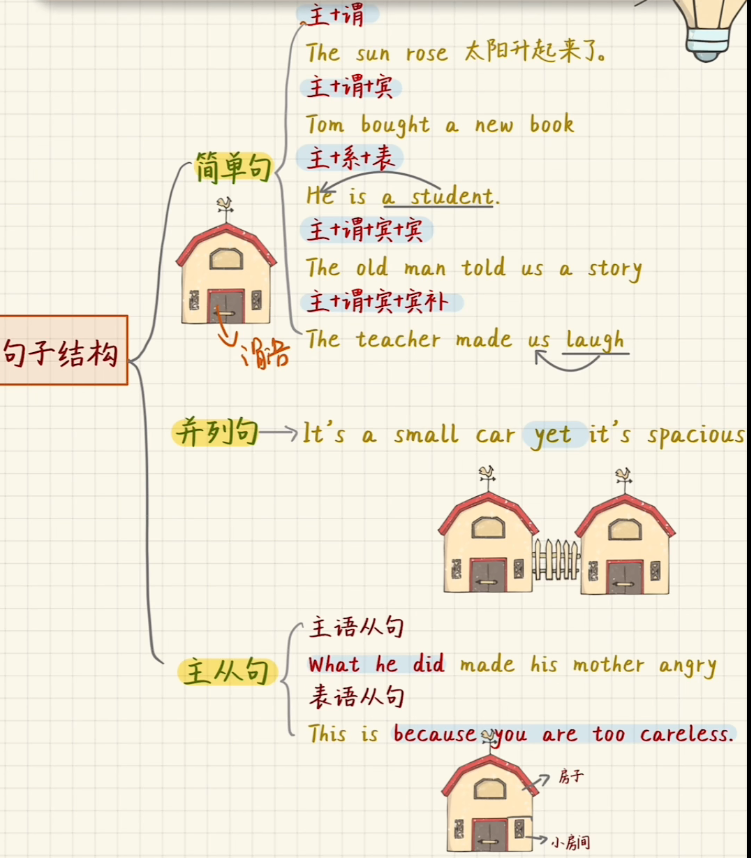 主+谓
The sun rose 太阳升起来了。
主+谓+宾
Tom bought a new book
简单句
主+系+表
He is a student.
主+谓+宾+宾
The old man told us a story
主+谓+宾+宾补
The teacher made us laugh
谓语
句子结构
并列句
It's a small car yet it's spacious
主从句
主语从句
What he did made his mother angry
表语从句
This is because you are too careless.
房子
小房间